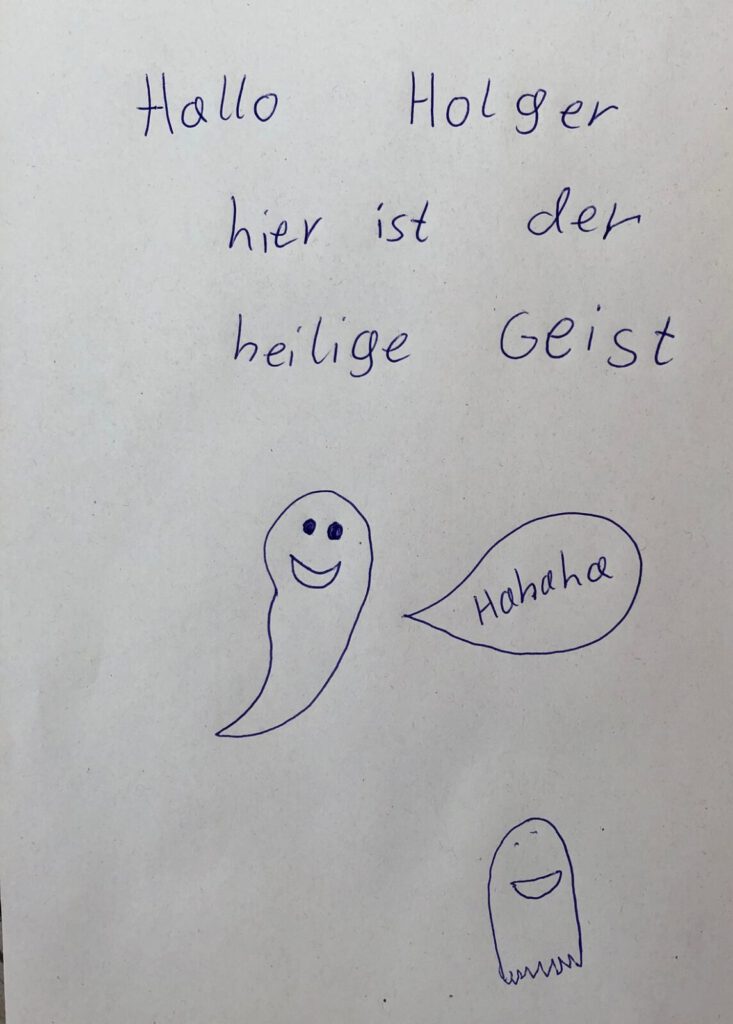 Hallo Holger
hier ist der
heilige Geist
Hahaha